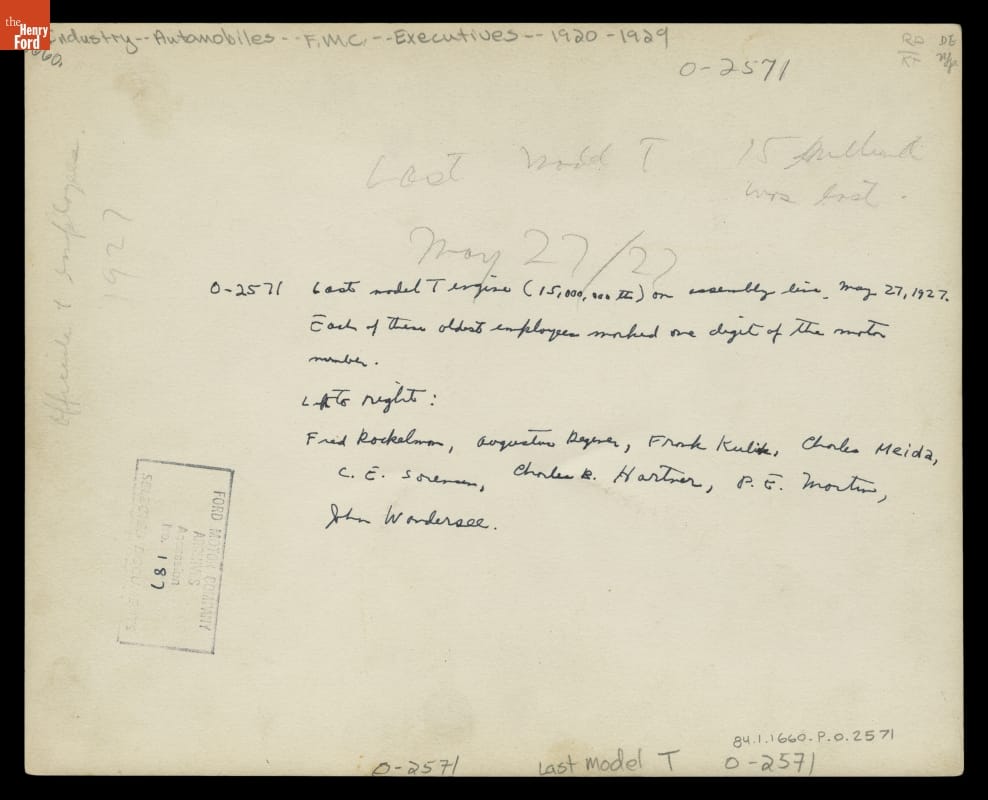 the Henry Ford
Industry--Automobiles--F.M.C.--Executives--1920-1929
0-2571
Last Model T 15 Million
was last.
May 27/27
Officials & Employees
1927
0-2571 Last model T engine (15,000,000th) on assembly line, May 27, 1927.
Each of these oldest employees marked one digit of the motor
number.
Left to right:
Fred Rockelman, Augustus Degener, Frank Kulik, Charles Meida,
C. E. Sorensen, Charles B. Hartner, P. E. Martin,
John Wandersee.
FORD MOTOR COMPANY
ARCHIVES
Accession
No. 187
SELECTED DOCUMENTS
84.1.1660.P.O.2571
0-2571 Last model T 0-2571